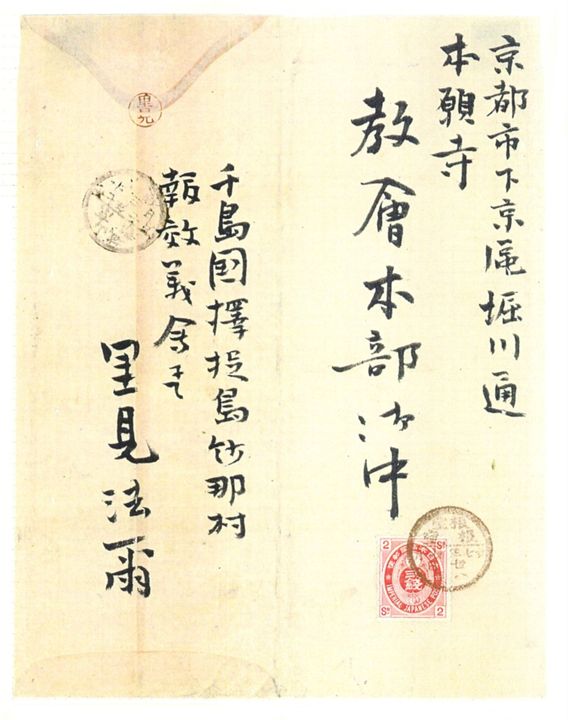 京都市下京區堀川通
本願寺
教會本部御中
千島國擇捉島紗那村
報效義會
里見法爾
2 Sn
二銭
IMPERIAL JAPANESE POST
Sn 2